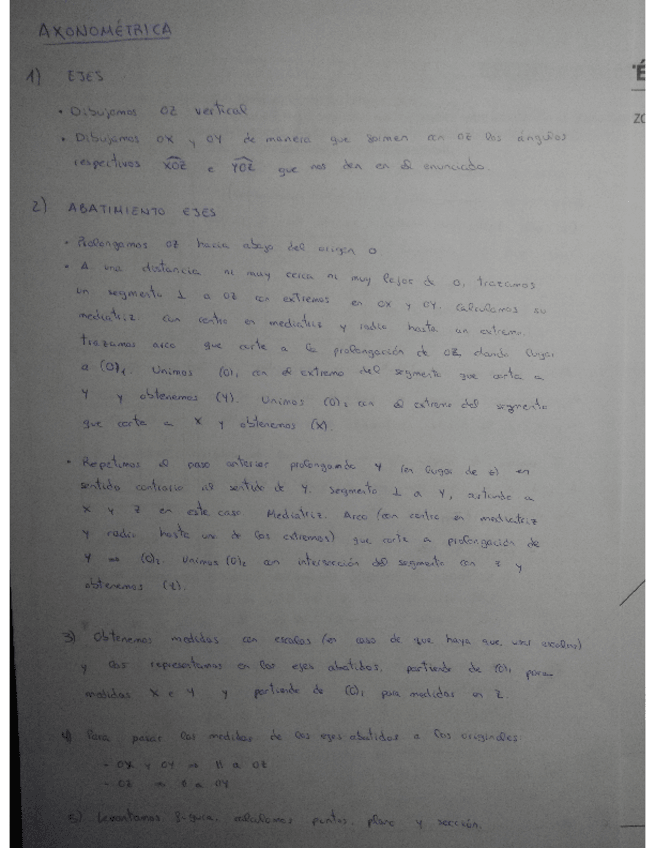 AXONOMÉTRICA
1) EJES
• Dibujamos OZ vertical
• Dibujamos OX y OY de manera que formen con OZ los ángulos
respectivos XOZ e YOZ que nos den en el enunciado.
2) ABATIMIENTO EJES
• Prolongamos OZ hacia abajo del origen O
• A una distancia ni muy cerca ni muy lejos de O, trazamos
un segmento ⊥ a OZ con extremos en OX y OY. Calculamos su
mediatriz. Con centro en mediatriz y radio hasta un extremo,
trazamos arco que corte a la prolongación de OZ, dando lugar
a (O)₁. Unimos (O)₁ con el extremo del segmento que corta a
Y y obtenemos (Y). Unimos (O)₁ con el extremo del segmento
que corta a X y obtenemos (X).
• Repetimos el paso anterior prolongando Y (en lugar de Z) en
sentido contrario al sentido de Y. Segmento ⊥ a Y, cortando a
X y Z en este caso. Mediatriz. Arco (con centro en mediatriz
y radio hasta uno de los extremos) que corte a prolongación de
Y ⇒ (O)₂. Unimos (O)₂ con intersección del segmento con Z y
obtenemos (Z).
3) Obtenemos medidas con escalas (en caso de que haya que usar escalas)
y las representamos en los ejes abatidos, partiendo de (O)₁ para
medidas X e Y y partiendo de (O)₂ para medidas en Z.
4) Para pasar las medidas de los ejes abatidos a los originales:
- OX y OY ⇒ // a OZ
- OZ ⇒ // a OY
5) Levantamos figura, calculamos puntos, plano y sección.
ZO